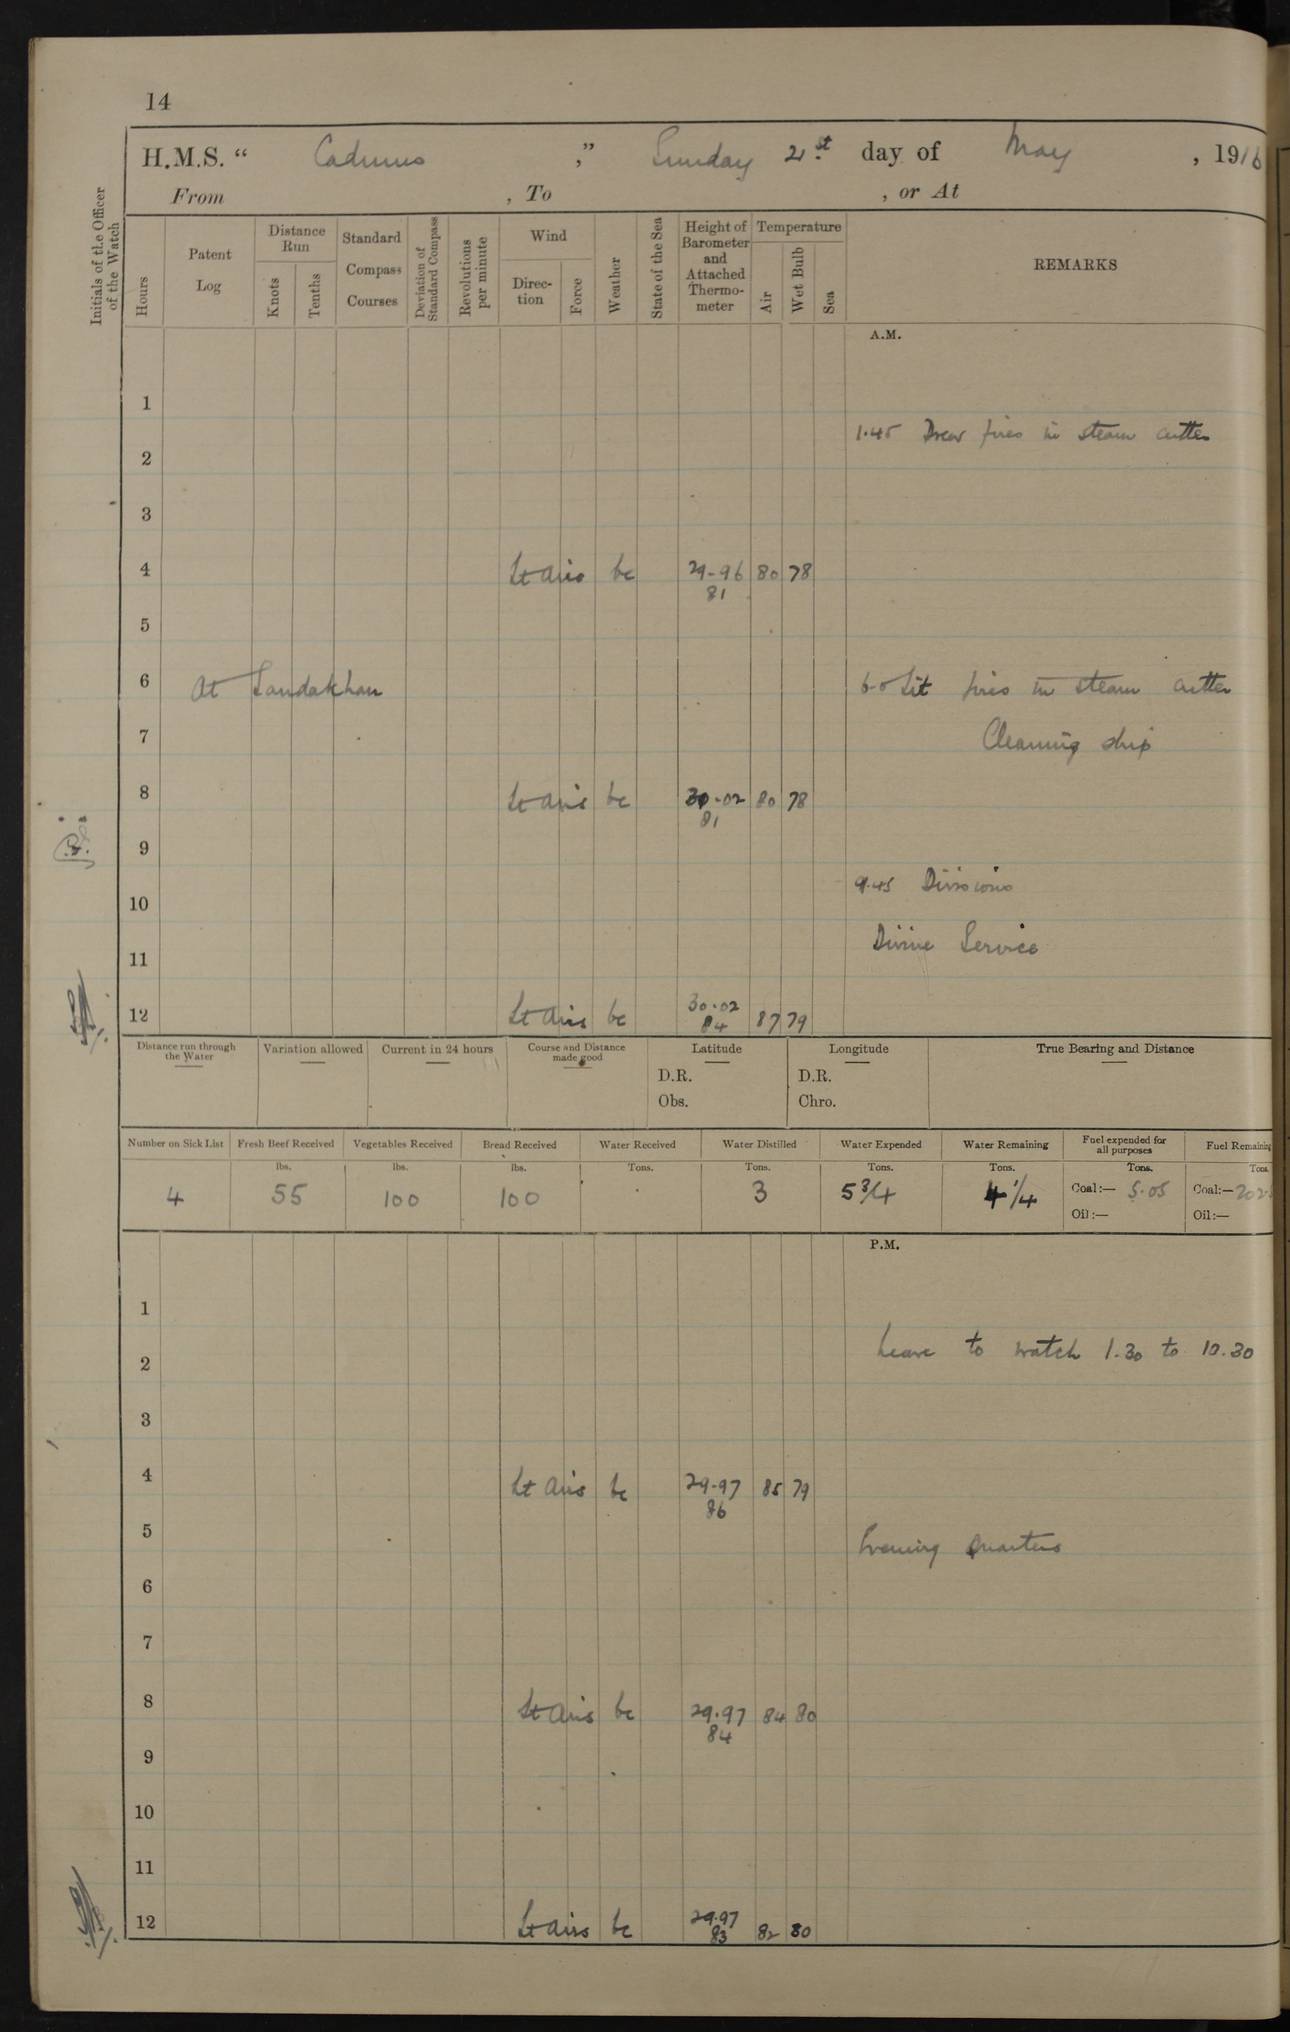 14
H.M.S. “ Cadmus ,” Sunday 21st day of May , 1916
From , To , or At
Initials of the Officer of the Watch
Hours
Patent Log
Distance Run
Knots
Tenths
Standard Compass Courses
Deviation of Standard Compass
Revolutions per minute
Wind
Direction
Force
Weather
State of the Sea
Height of Barometer and Attached Thermometer
Temperature
Air
Wet Bulb
Sea
REMARKS
A.M.
1
1.45 Drew fires in steam cutter
2
3
4 Lt airs bc 29-96 80 78
81
5
6 At Sandakhan 6-0 Lit fires in steam cutter
7 Cleaning ship
8 Lt airs bc 30-02 80 78
81
9
9.45 Divisions
10
Divine Service
11
12 Lt airs bc 30.02 87 79
84
Distance run through the Water
Variation allowed
Current in 24 hours
Course and Distance made good
Latitude
D.R.
Obs.
Longitude
D.R.
Chro.
True Bearing and Distance
Number on Sick List Fresh Beef Received Vegetables Received Bread Received Water Received Water Distilled Water Expended Water Remaining Fuel expended for all purposes Fuel Remaining
lbs. lbs. lbs. Tons. Tons. Tons. Tons. Tons. Tons.
4 55 100 100 3 5 3/4 4 1/4 Coal:— 5.05 Coal:— 202.
Oil:— Oil:—
P.M.
1
Leave to watch 1.30 to 10.30
2
3
4 Lt airs bc 29-97 85 79
86
5
Evening Quarters
6
7
8 Lt airs bc 29.97 84 80
84
9
10
11
12 Lt airs bc 29.97 82 80
83